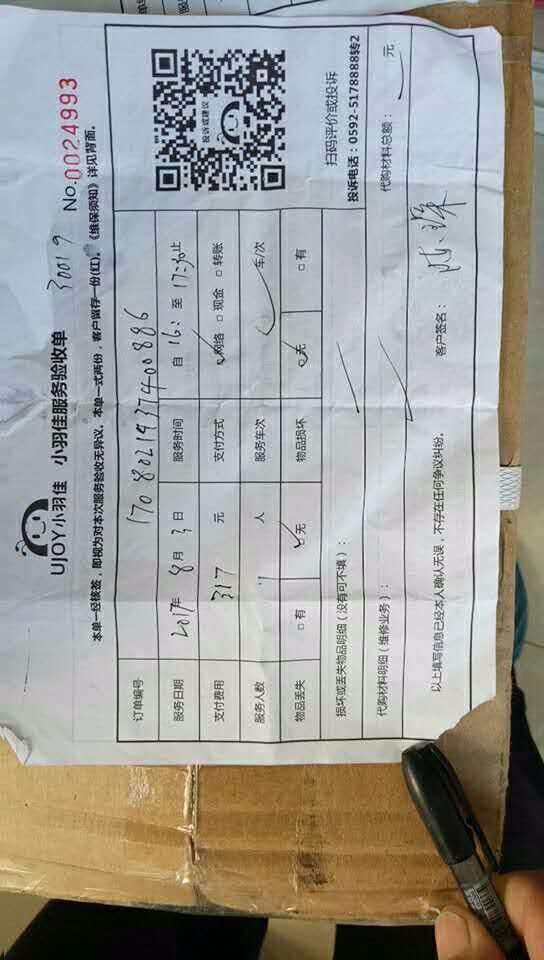 UJOY小羽佳 小羽佳服务验收单 30019 No.0024993
本单一经核签，即视为对本次服务验收无异议。本单一式两份，客户留存一份(红)。《维保须知》详见背面。
订单编号 1708021937400886
服务日期 2017年 8月 3日 服务时间 自 16: 至 17:30止
支付费用 317 元 支付方式 ☑网络 □现金 □转账
服务人数 人 服务车次 车/次
物品丢失 □有 ☑无 物品损坏 ☑无 □有
投诉或建议
扫码评价或投诉
投诉电话：0592-5178888转2
损坏或丢失物品明细（没有可不填）：
代购材料明细（维修业务）： 代购材料总额： 元
以上填写信息已经本人确认无误，不存在任何争议纠纷。 客户签名：